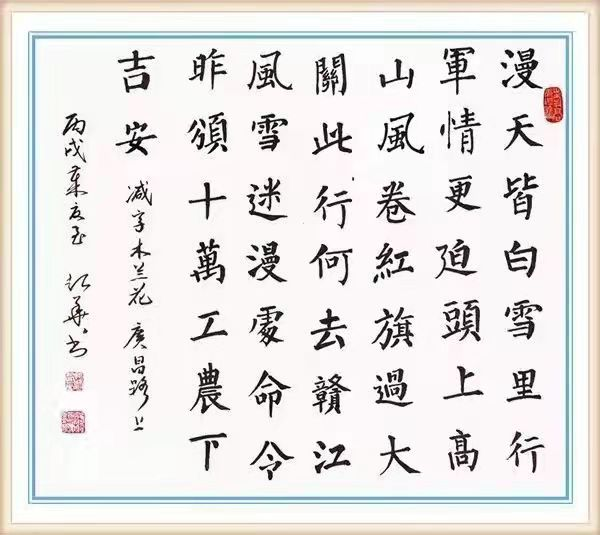 漫天皆白雪里行
軍情更迫頭上高
山風卷紅旗過大
關此行何去贛江
風雪迷漫處命令
昨頒十萬工農下
吉安 减字木兰花 廣昌路上
丙戌 华书